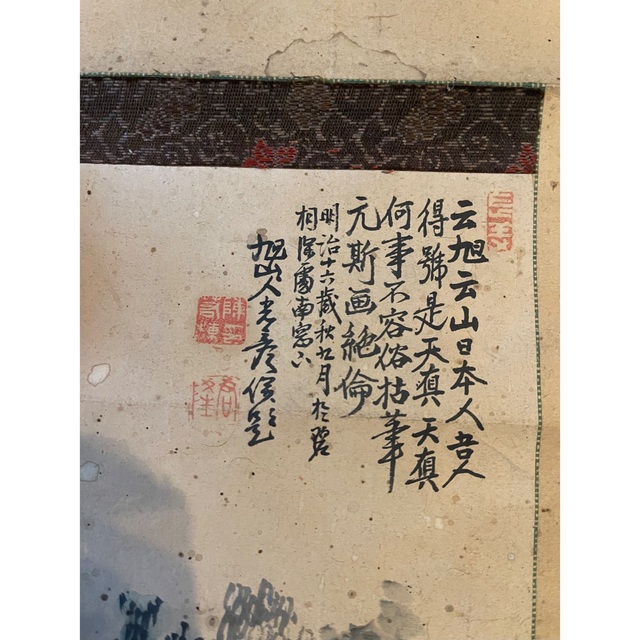 云旭云山日本人吾人
得號是天真天真
何事不容俗枯筆
元斯画絶倫
明治十六歳秋九月於碧
相深處南窓下
旭山人
題